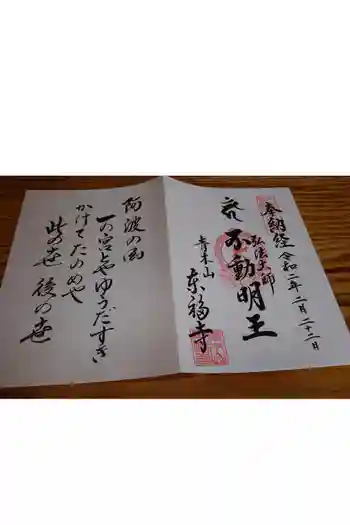 奉納経
令和二年二月二十二日
弘法大師
不動明王
青木山
東福寺
阿波の国
一の宮とやゆうだすき
かけてたのめや
此の世後の世